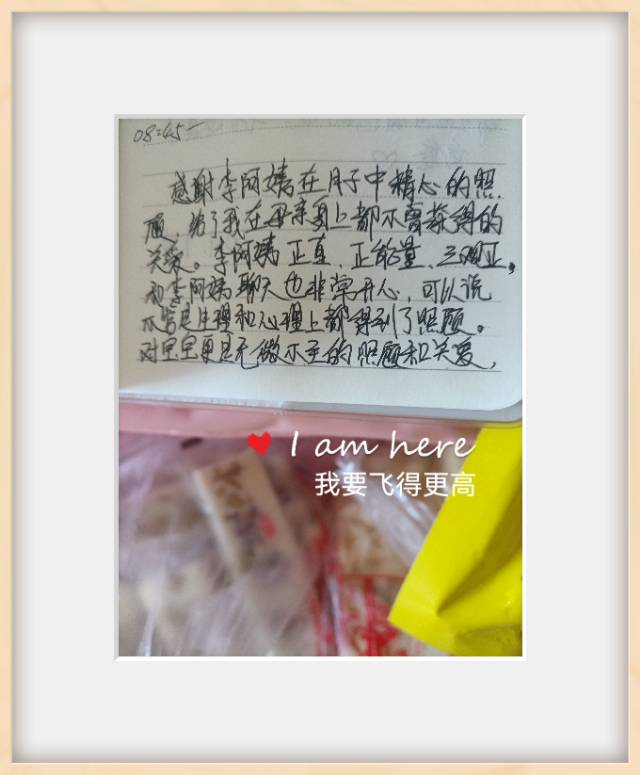 08:45
感谢李阿姨在月子中精心的照
顾，给了我在母亲身上都不曾获得的
关爱。李阿姨正直、正能量、三观正，
和李阿姨聊天也非常开心，可以说
不管是生理和心理上都得到了照顾。
对宝宝更是无微不至的照顾和关爱，
I am here
我要飞得更高